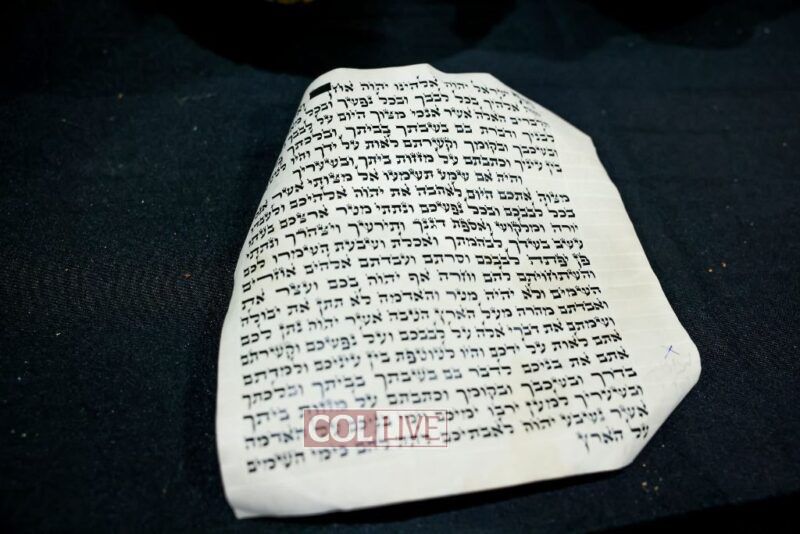 ישראל יהוה אלהינו יהוה אחד
אלהיך בכל לבבך ובכל נפשך ובכל
הדברים האלה אשר אנכי מצוך היום על לבבך
לבניך ודברת בם בשבתך בביתך ובלכתך
ובשכבך ובקומך וקשרתם לאות על ידך והיו
בין עיניך וכתבתם על מזזות ביתך ובשעריך
והיה אם שמע תשמעו אל מצותי אשר
מצוה אתכם היום לאהבה את יהוה אלהיכם ולעבדו
בכל לבבכם ובכל נפשכם ונתתי מטר ארצכם בעתו
יורה ומלקוש ואספת דגנך ותירשך ויצהרך ונתתי
עשב בשדך לבהמתך ואכלת ושבעת השמרו לכם
פן יפתה לבבכם וסרתם ועבדתם אלהים אחרים
והשתחויתם להם וחרה אף יהוה בכם ועצר את
השמים ולא יהיה מטר והאדמה לא תתן את יבולה
ואבדתם מהרה מעל הארץ הטבה אשר יהוה נתן לכם
ושמתם את דברי אלה על לבבכם ועל נפשכם וקשרתם
אתם לאות על ידכם והיו לטוטפת בין עיניכם ולמדתם
אתם את בניכם לדבר בם בשבתך בביתך ובלכתך
בדרך ובשכבך ובקומך וכתבתם על מזוזות ביתך
ובשעריך למען ירבו ימיכם וימי בניכם על האדמה
אשר נשבע יהוה לאבתיכם לתת להם כימי השמים
על הארץ
COLLIVE